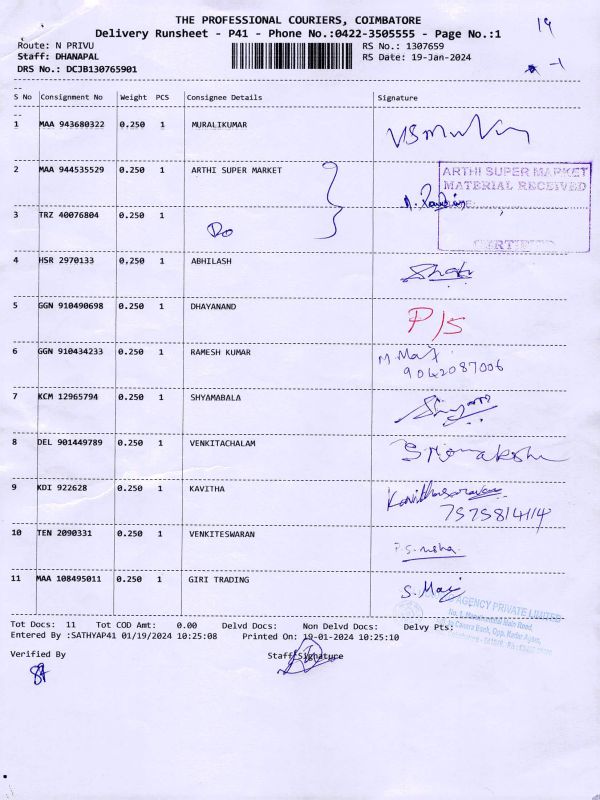 THE PROFESSIONAL COURIERS, COIMBATORE
Delivery Runsheet - P41 - Phone No.:0422-3505555 - Page No.:1
19
Route: N PRIVU RS No.: 1307659
Staff: DHANAPAL RS Date: 19-Jan-2024
DRS No.: DCJB130765901
-1
S No Consignment No Weight PCS Consignee Details Signature
1 MAA 943680322 0.250 1 MURALIKUMAR
2 MAA 944535529 0.250 1 ARTHI SUPER MARKET
ARTHI SUPER MARKET
MATERIAL RECEIVED
3 TRZ 40076804 0.250 1 Do
CERTIFIED
4 HSR 2970133 0,250 1 ABHILASH
5 GGN 910490698 0.250 1 DHAYANAND P/S
6 GGN 910434233 0.250 1 RAMESH KUMAR
9042087006
7 KCM 12965794 0.250 1 SHYAMABALA
8 DEL 901449789 0.250 1 VENKITACHALAM
9 KDI 922628 0.250 1 KAVITHA
10 TEN 2090331 0.250 1 VENKITESWARAN
11 MAA 108495011 0.250 1 GIRI TRADING
AGENCY PRIVATE LIMITED
Tot Docs: 11 Tot COD Amt: 0.00 Delvd Docs: Non Delvd Docs: Delvy Pts:
Entered By :SATHYAP41 01/19/2024 10:25:08 Printed On: 19-01-2024 10:25:10
Verified By Staff Signature